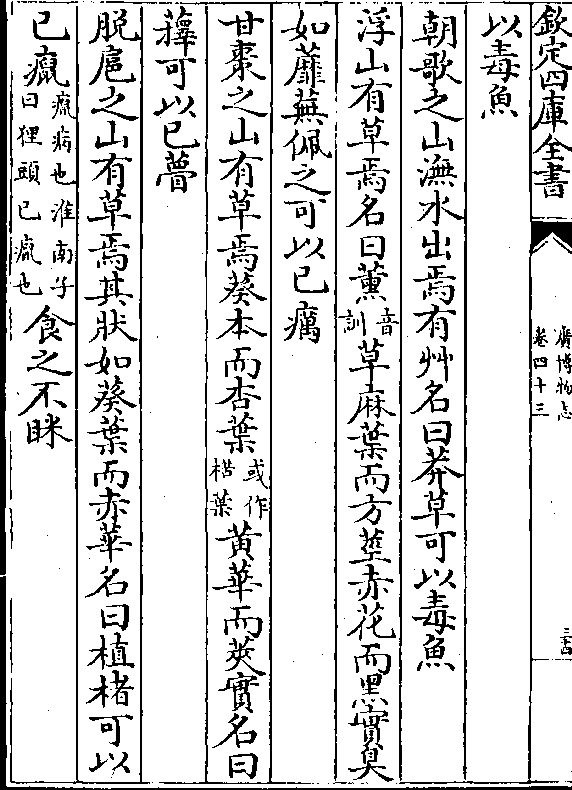 欽定四庫全書
廣博物志
卷四十三
三十四
以毒魚
朝歌之山潕水出焉有艸名曰莽草可以毒魚
浮山有草焉名曰薰音訓草麻葉而方莖赤花而黑實臭
如蘼蕪佩之可以已癘
甘棗之山有草焉葵本而杏葉或作楛葉黃華而莢實名曰
蘀可以已瞢
脫扈之山有草焉其狀如葵葉而赤華名曰植楮可以
已癙癙病也淮南子曰狸頭已癙也食之不眯